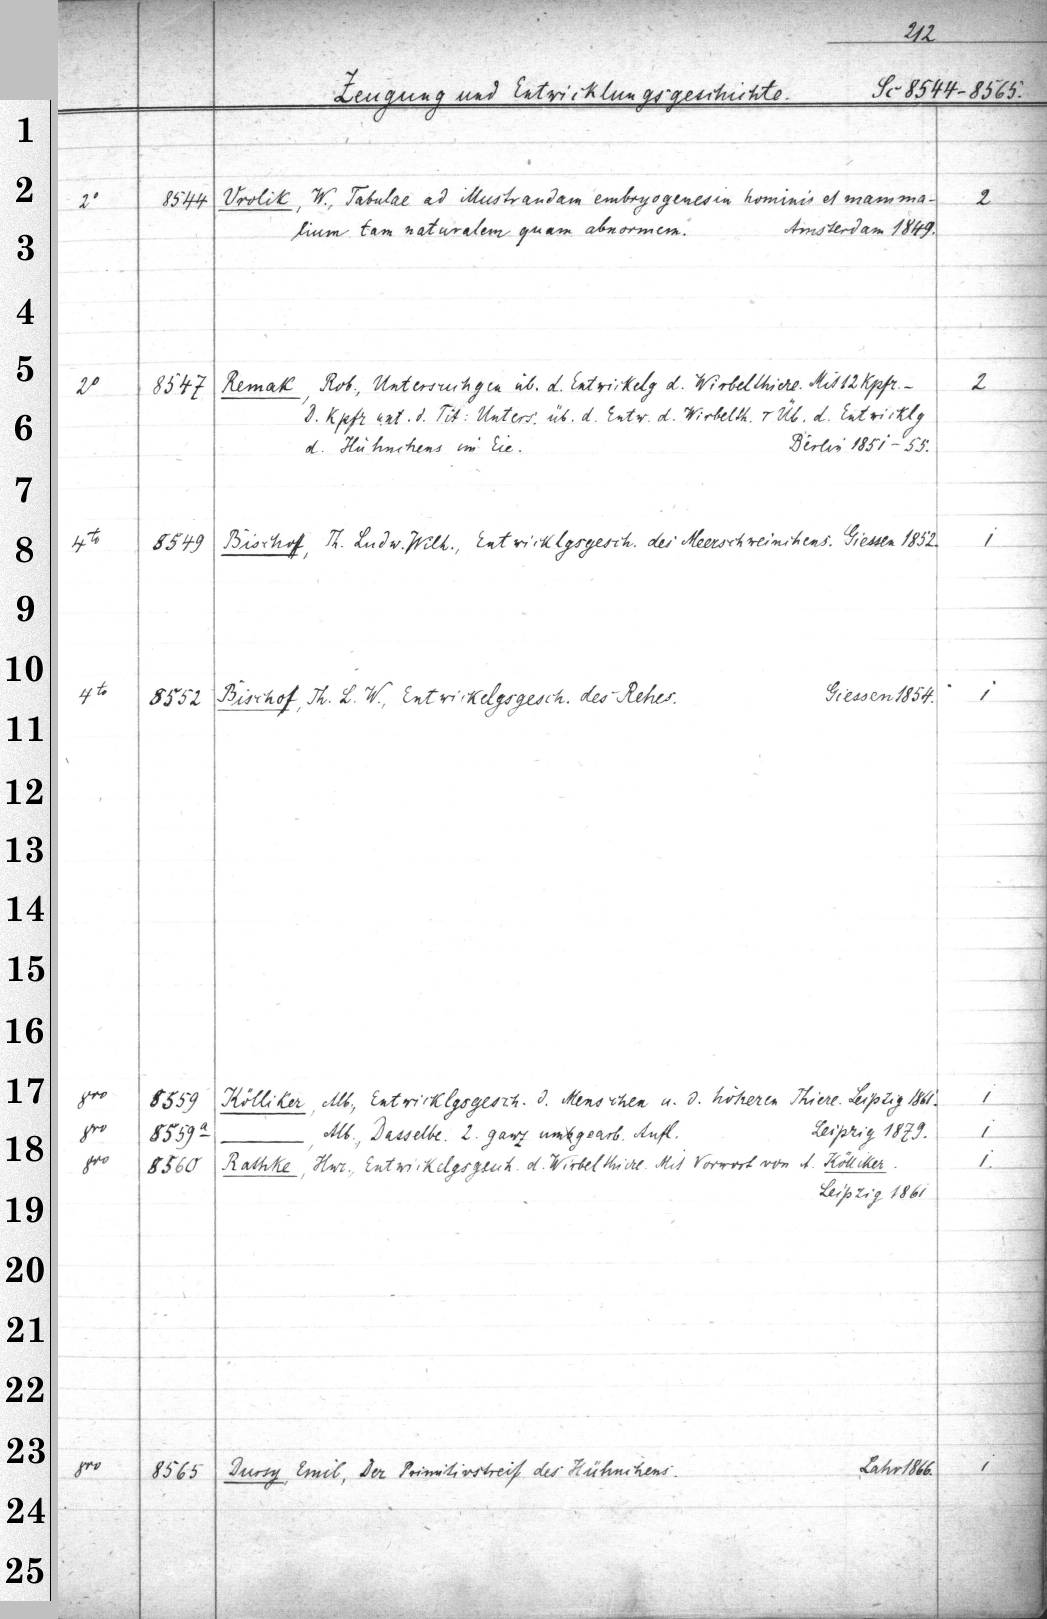 212
Zeugung und Entwicklungsgeschichte. Sc 8544-8565.
1
2
2° 8544 Vrolik, W., Tabulae ad illustrandam embryogenesin hominis et mamma- 2
lium tam naturalem quam abnormem. Amsterdam 1849.
3
4
5
2° 8547 Remak, Rob., Untersuchgen üb. d. Entwickelg d. Wirbelthiere. Mit 12 Kpfr. - 2
D. Kpfr unt. d. Tit: Unters. üb. d. Entw. d. Wirbelth. Üb. d. Entwicklg
6
d. Hühnchens im Eie. Berlin 1851-55.
7
8
4to 8549 Bischof, Th. Ludw. Wilh., Entwicklgsgesch. des Meerschweinchens. Giessen 1852. 1
9
10
4to 8552 Bischof, Th. L. W., Entwickelgsgesch. des Rehes. Giessen 1854. 1
11
12
13
14
15
16
17
8vo 8559 Kölliker, Alb., Entwicklgsgesch. d. Menschen u. d. höheren Thiere. Leipzig 1861. 1
8vo 8559a ———, Alb., Dasselbe. 2. ganz umgearb. Aufl. Leipzig 1879. 1
18
8vo 8560 Rathke, Hnr., Entwickelgsgesch. d. Wirbelthiere. Mit Vorwort von A. Kölliker. 1.
Leipzig 1861
19
20
21
22
23
8vo 8565 Dursy, Emil, Der Primitivstreif des Hühnchens. Lahr 1866. 1
24
25